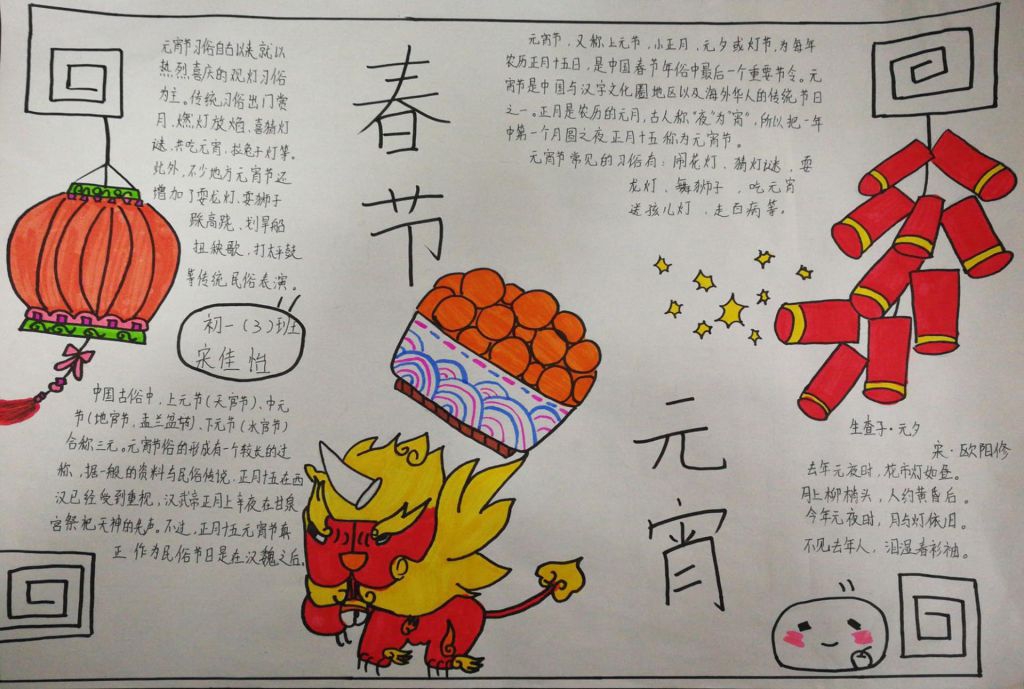 元宵节习俗自古以来就以
热烈喜庆的观灯习俗
为主。传统习俗出门赏
月、燃灯放焰、喜猜灯
谜、共吃元宵、拉兔子灯等。
此外,不少地方元宵节还
增加了耍龙灯、耍狮子
踩高跷、划旱船
扭秧歌、打太平鼓
等传统民俗表演。
初一(3)班
宋佳怡
中国古俗中,上元节(天官节)、中元
节(地官节、盂兰盆节)、下元节(水官节)
合称三元。元宵节俗的形成有一个较长的过
称,据一般的资料与民俗传说,正月十五在西
汉已经受到重视,汉武帝正月上辛夜在甘泉
宫祭祀天神的先声。不过,正月十五元宵节真
正作为民俗节日是在汉魏之后。
春节
元宵
元宵节,又称上元节,小正月,元夕或灯节,为每年
农历正月十五日,是中国春节年俗中最后一个重要节令。元
宵节是中国与汉字文化圈地区以及海外华人的传统节日
之一。正月是农历的元月,古人称“夜”为“宵”,所以把一年
中第一个月圆之夜正月十五称为元宵节。
元宵节常见的习俗有:闹花灯、猜灯谜、耍
龙灯、舞狮子、吃元宵
送孩儿灯、走百病等。
生查子·元夕
宋·欧阳修
去年元夜时,花市灯如昼。
月上柳梢头,人约黄昏后。
今年元夜时,月与灯依旧。
不见去年人,泪湿春衫袖。